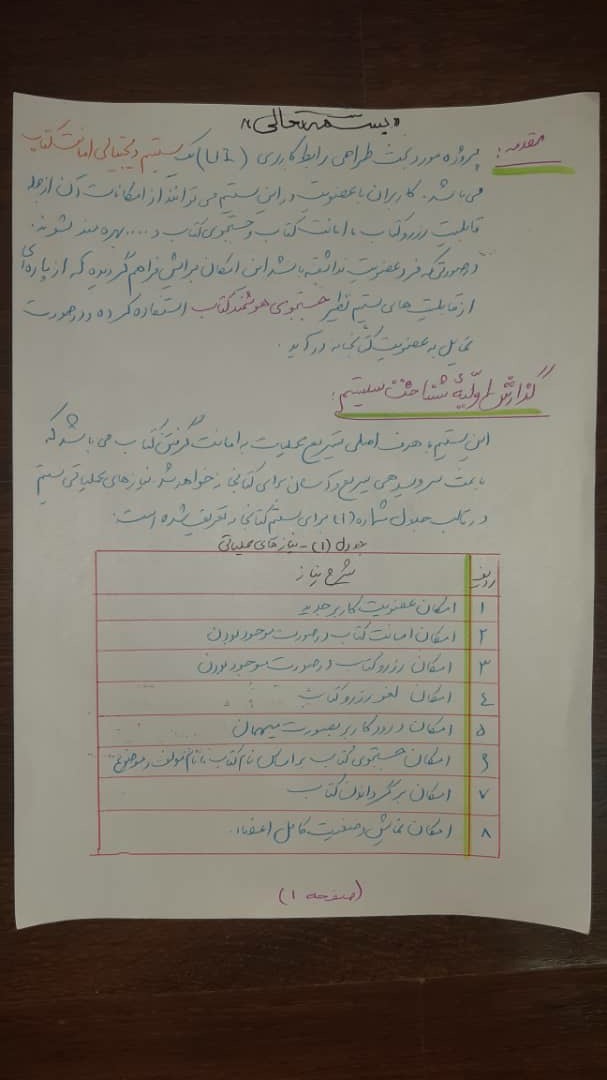 «بسمه تعالی»
مقدمه:
پروژه مورد بحث طراحی رابط کاربری (UI) یک سیستم دیجیتالی امانت کتاب
می باشد. کاربران با عضویت در این سیستم می توانند از امکانات آن از جمله
قابلیت رزرو کتاب، امانت کتاب و جستجوی کتاب و .... بهره مند شوند.
در صورتی که فرد عضویت نداشته باشد این امکان برایش فراهم گردیده که از پاره ای
از قابلیت های سیستم نظیر جستجوی هوشمند کتاب استفاده کرده و در صورت
تمایل به عضویت کتابخانه در آید.
گزارش اولیّه شناخت سیستم:
این سیستم با هدف اصلی تسریع عملیات به امانت گرفتن کتاب می باشد که
باعث سرویسدهی سریع و آسان برای کتابخانه خواهد شد. نیازهای عملیاتی سیستم
در قالب جدول شماره (۱) برای سیستم کتابخانه تعریف شده است.
جدول (۱) - نیازهای عملیاتی
ردیف شرح نیاز
۱ امکان عضویت کاربر جدید
۲ امکان امانت کتاب در صورت موجود بودن
۳ امکان رزرو کتاب در صورت موجود بودن
۴ امکان لغو رزرو کتاب
۵ امکان ورود کاربر بصورت میهمان
۶ امکان جستجوی کتاب بر اساس نام کتاب، نام مولف و موضوع
۷ امکان برگرداندن کتاب
۸ امکان نمایش وضعیت کامل اعضاء.
(صفحه ۱)